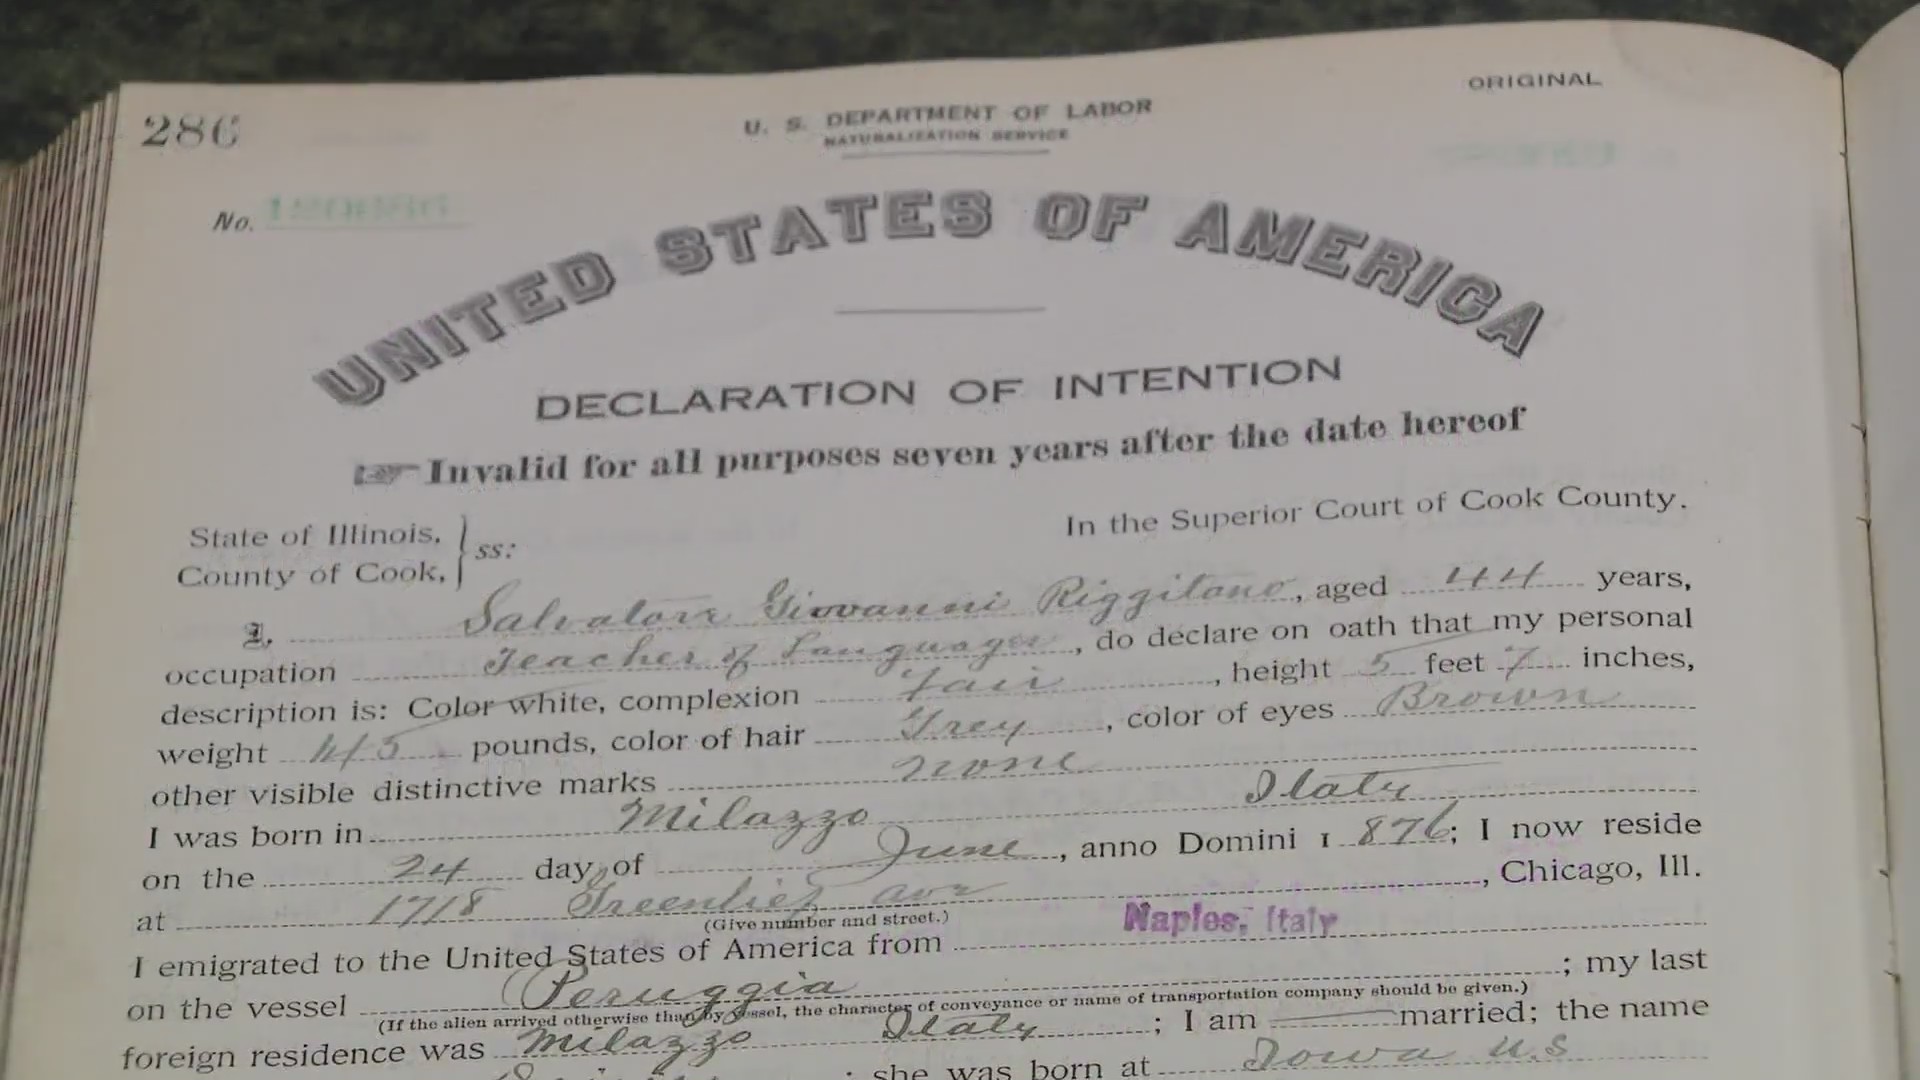 ORIGINAL
286
U. S. DEPARTMENT OF LABOR
NATURALIZATION SERVICE
No.
UNITED STATES OF AMERICA
DECLARATION OF INTENTION
Invalid for all purposes seven years after the date hereof
State of Illinois,
County of Cook, ss:
In the Superior Court of Cook County.
I, Salvatore Giovanni Riggitano, aged 44 years,
occupation Teacher of Languages, do declare on oath that my personal
description is: Color white, complexion Fair, height 5 feet 7 inches,
weight 145 pounds, color of hair Grey, color of eyes Brown
other visible distinctive marks none
I was born in Milazzo Italy
on the 24 day of June, anno Domini 1 876; I now reside
at 1718 Greenlief ave, Chicago, Ill.
(Give number and street.)
I emigrated to the United States of America from Naples, Italy
on the vessel Peruggia; my last
(If the alien arrived otherwise than by vessel, the character of conveyance or name of transportation company should be given.)
foreign residence was Milazzo Italy; I am married; the name
; she was born at Iowa U.S